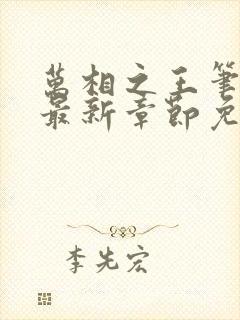 萬相之王筆
最新章節免
李先宏